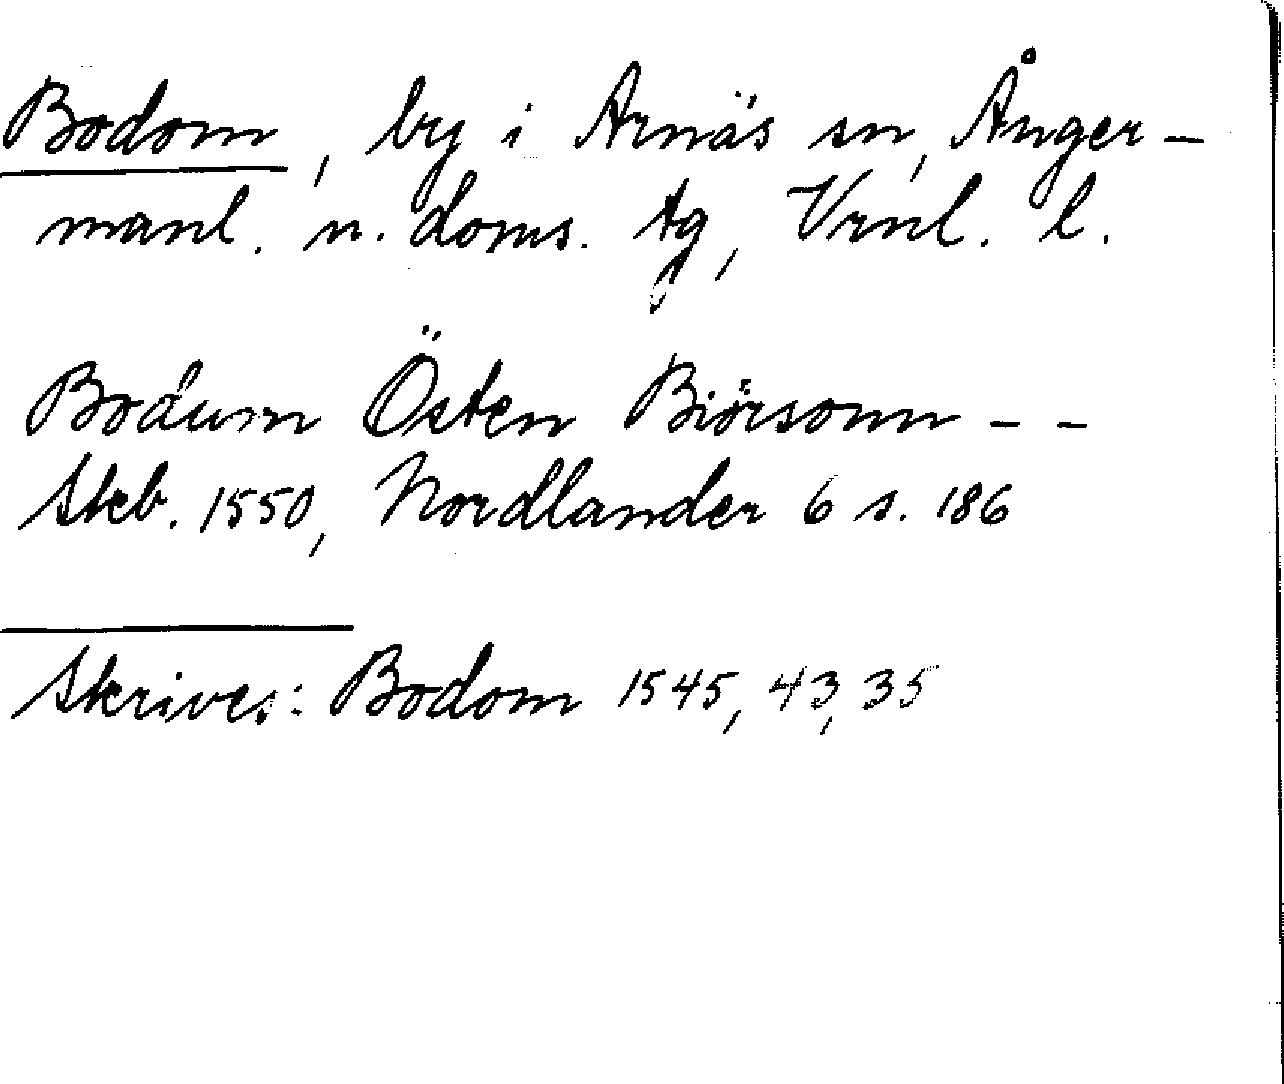 Bodom, by i Arnäs sn, Ånger-
manl. n. doms. tg, Vrnl. l.
Bodum Östen Biörsonn - -
Skb. 1550, Nordlander 6 s. 186
Skrives: Bodom 1545, 43, 35